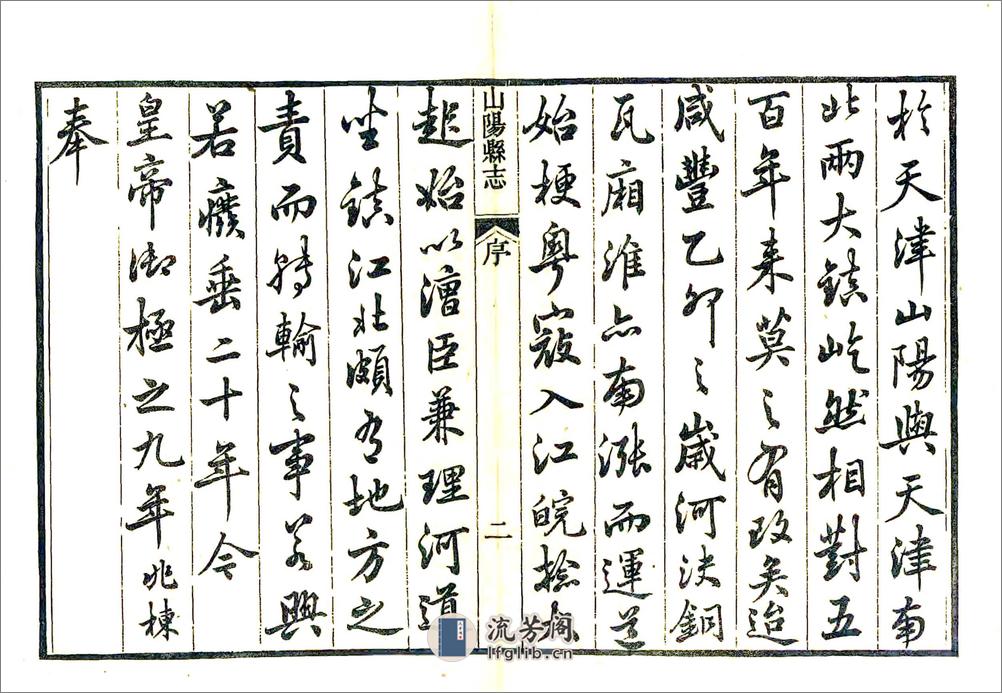 於天津山陽與天津南
北兩大鎮屹然相對五
百年来莫之有改矣迨
咸豐乙卯之歲河決銅
瓦廂淮亦南漲而運道
始梗粵寇入江皖捻
山陽縣志
序
二
起始以漕臣兼理河道
坐鎮江北頗有地方之
責而轉輸之事若興
若癈垂二十年今
皇帝御極之九年兆棟
奉
流芳阁
lfglib.cn